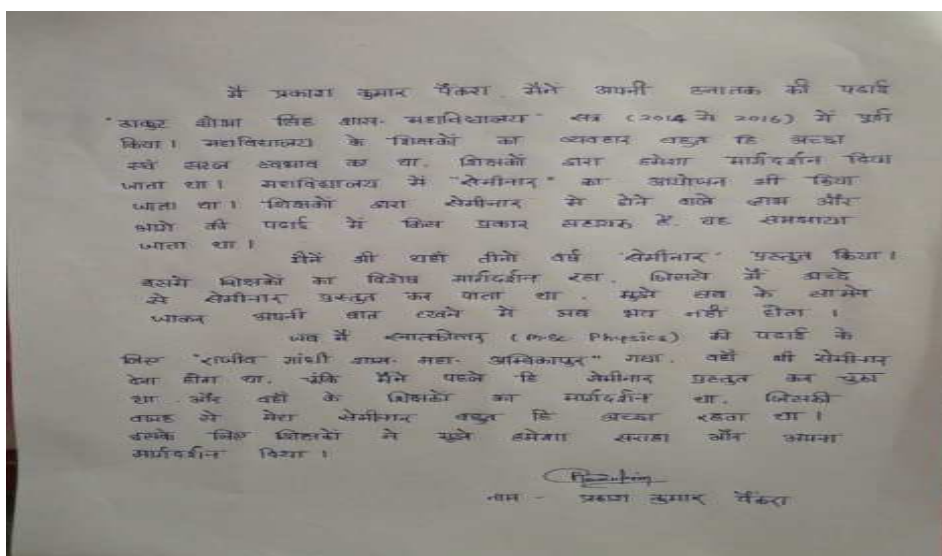 मै प्रकाश कुमार पैंकरा. मैनें अपनी स्नातक की पढाई
"ठाकुर शोभा सिंह शास. महाविद्यालय" सत्र (2014 से 2016) में पुरी
किया। महाविद्यालय के शिक्षकों का व्यवहार बहुत हि अच्छा
सरल स्वभाव का था. शिक्षकों द्वारा हमेशा मार्गदर्शन दिया
जाता था। महाविद्यालय में "सेमीनार" का आयोजन भी किया
जाता था। शिक्षकों द्वारा सेमीनार से होने वाले लाभ और
आगे की पढाई में किस प्रकार सहायक है. वह समझाया
जाता था।
मैनें भी यहाँ तीनो वर्ष "सेमीनार" प्रस्तुत किया।
इसमे शिक्षकों का विशेष मार्गदर्शन रहा. जिससे मैं अच्छे
से सेमीनार प्रस्तुत कर पाता था. मुझे सब के सामने
जाकर अपनी बात रखने में अब भय नहीं होता।
जब मैं स्नातकोत्तर (M.Sc Physics) की पढाई के
लिए "राजीव गांधी शास. महा. अम्बिकापुर" गया. वहाँ भी सेमीनार
देना होता था. चूंकि मैंने पहले हि सेमीनार प्रस्तुत कर चुका
था और वही के शिक्षकों का मार्गदर्शन था. जिसकी
वजह से मेरा सेमीनार बहुत हि अच्छा रहता था।
इसके लिए शिक्षकों ने मुझे हमेशा सराहा और अपना
मार्गदर्शन दिया।
नाम - प्रकाश कुमार पैंकरा